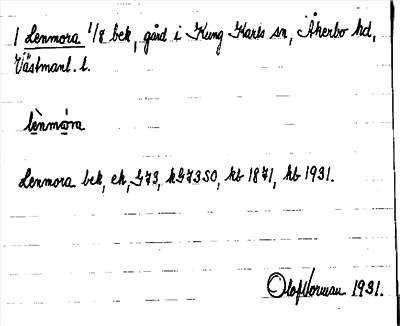 1 Lenmora 1/8 bek, gård i Kung Karls sn, Åkerbo hd,
Västmanl. l.
lènmóra
Lenmora bek, ek, G73, kG73SO, kb 1871, hb 1931.
Olof Norman 1931.